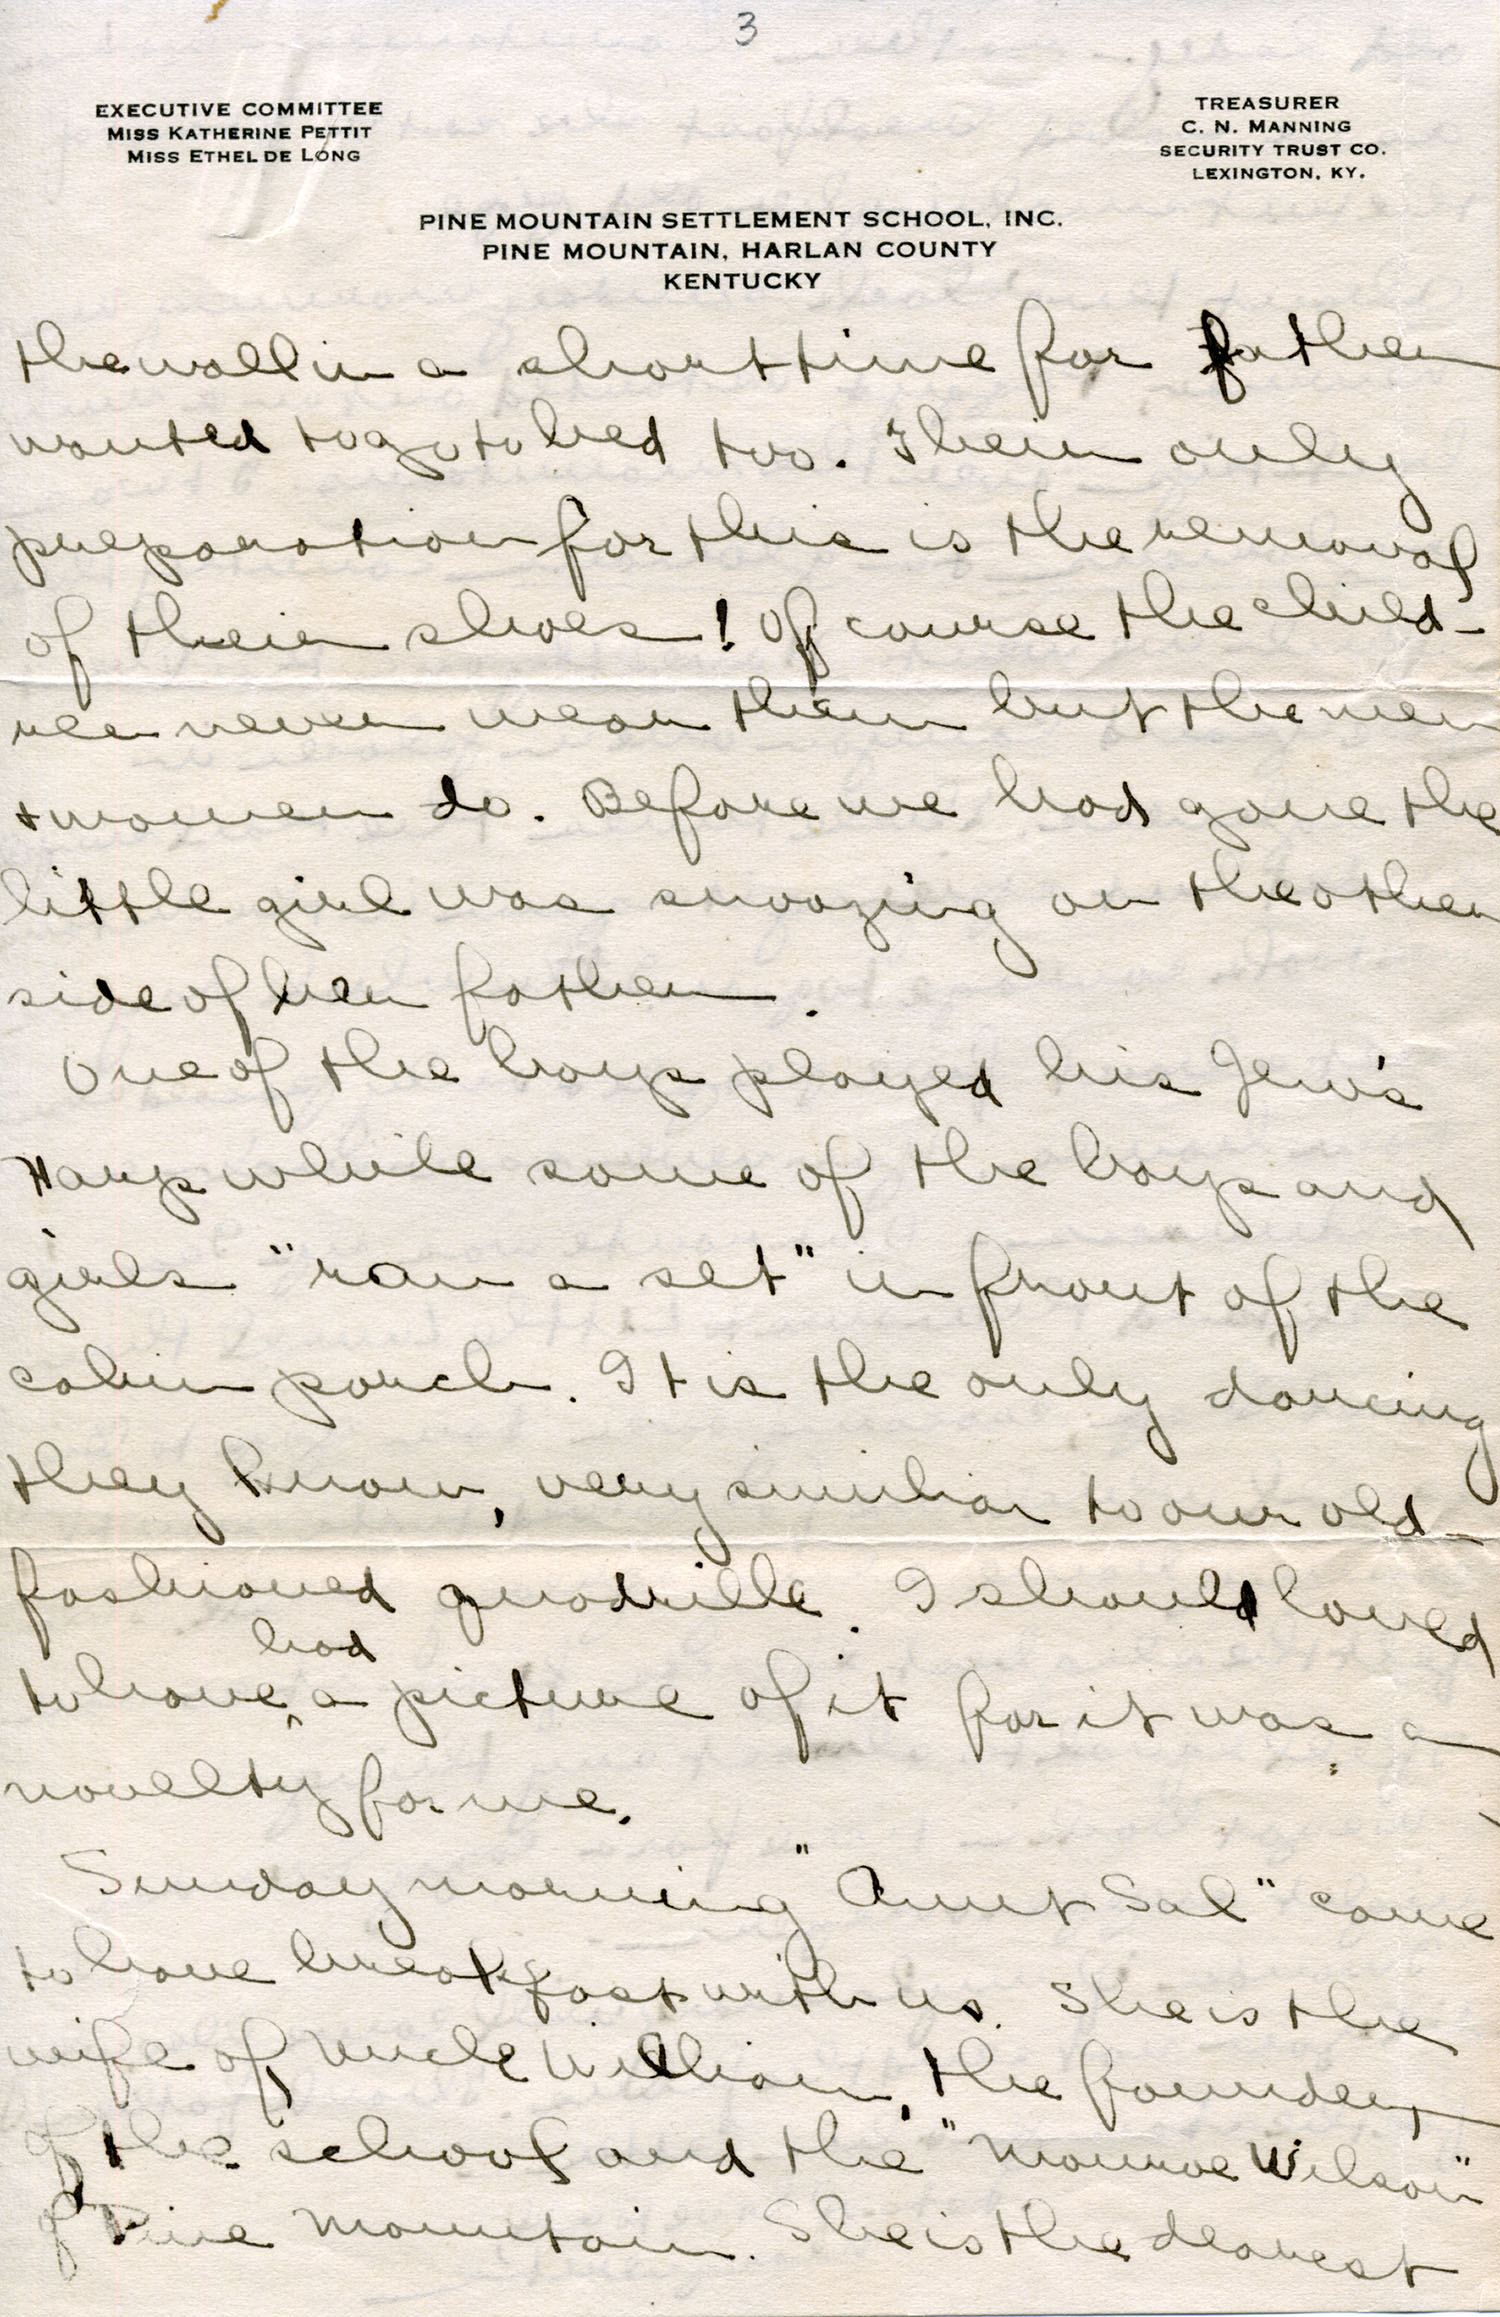 3
EXECUTIVE COMMITTEE
MISS KATHERINE PETTIT
MISS ETHEL DE LONG
TREASURER
C. N. MANNING
SECURITY TRUST CO.
LEXINGTON, KY.
PINE MOUNTAIN SETTLEMENT SCHOOL, INC.
PINE MOUNTAIN, HARLAN COUNTY
KENTUCKY
the wall in a short time for father
wanted to go to bed too. Their only
preparation for this is the removal
of their shoes! Of course the child-
ren never wear them but the men
+ women do. Before we had gone the
little girl was snoozing on the other
side of her father.
One of the boys played his Jew's
Harp while some of the boys and
girls "ran a set" in front of the
cabin porch. It is the only dancing
they know, very similar to our old-
fashioned quadrille. I should loved
had
to have ^ a picture of it for it was a
novelty for me.
Sunday morning "Aunt Sal" came
to have breakfast with us. She is the
wife of Uncle William, the founder,
of the school and the "Monroe Wilson"
of Pine Mountain. She is the dearest